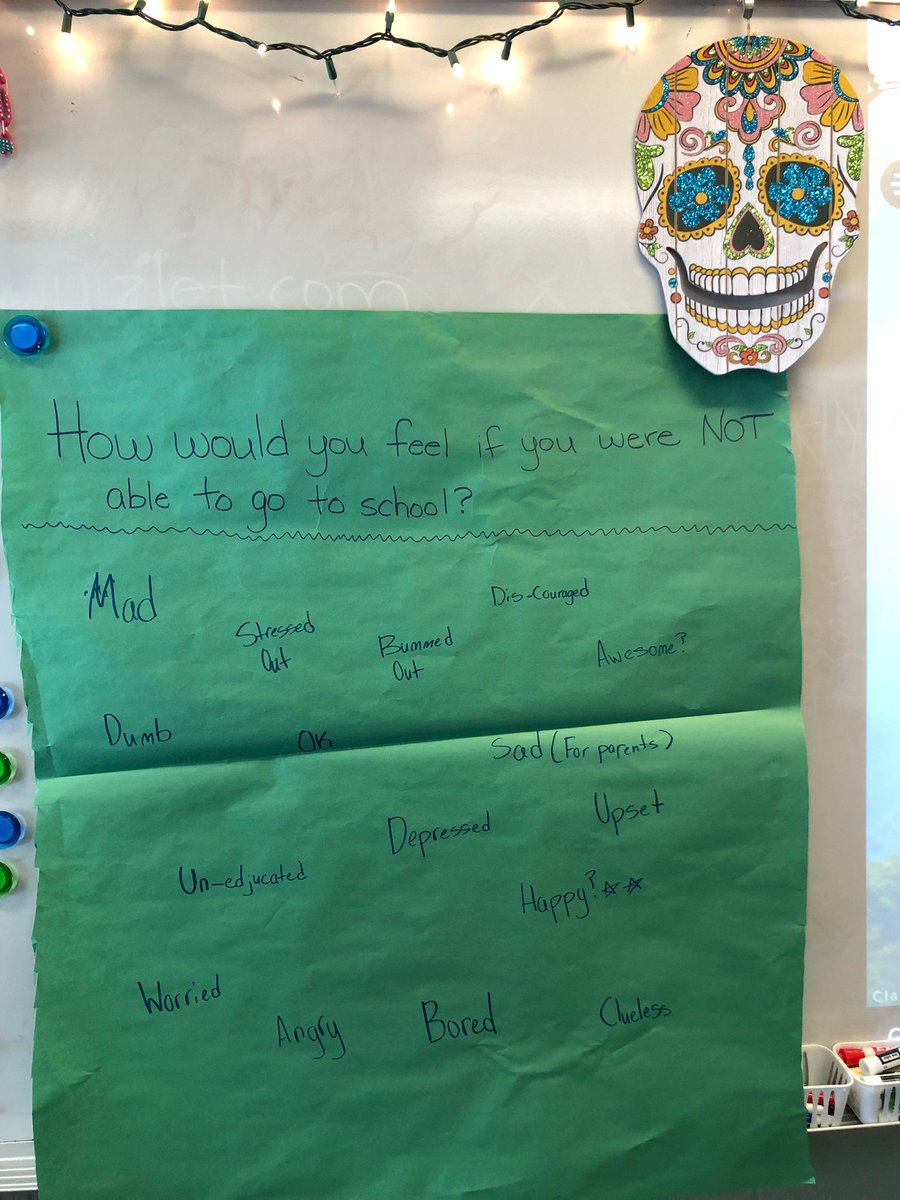 let.com
How would you feel if you were NOT
able to go to school?
Mad
Dis-Couraged
Stressed
Out
Bummed
Out
Awesome?
Dumb
OK
Sad (For parents)
Depressed
Upset
Un-edjucated
Happy?☆☆
Worried
Angry
Bored
Clueless
Cla